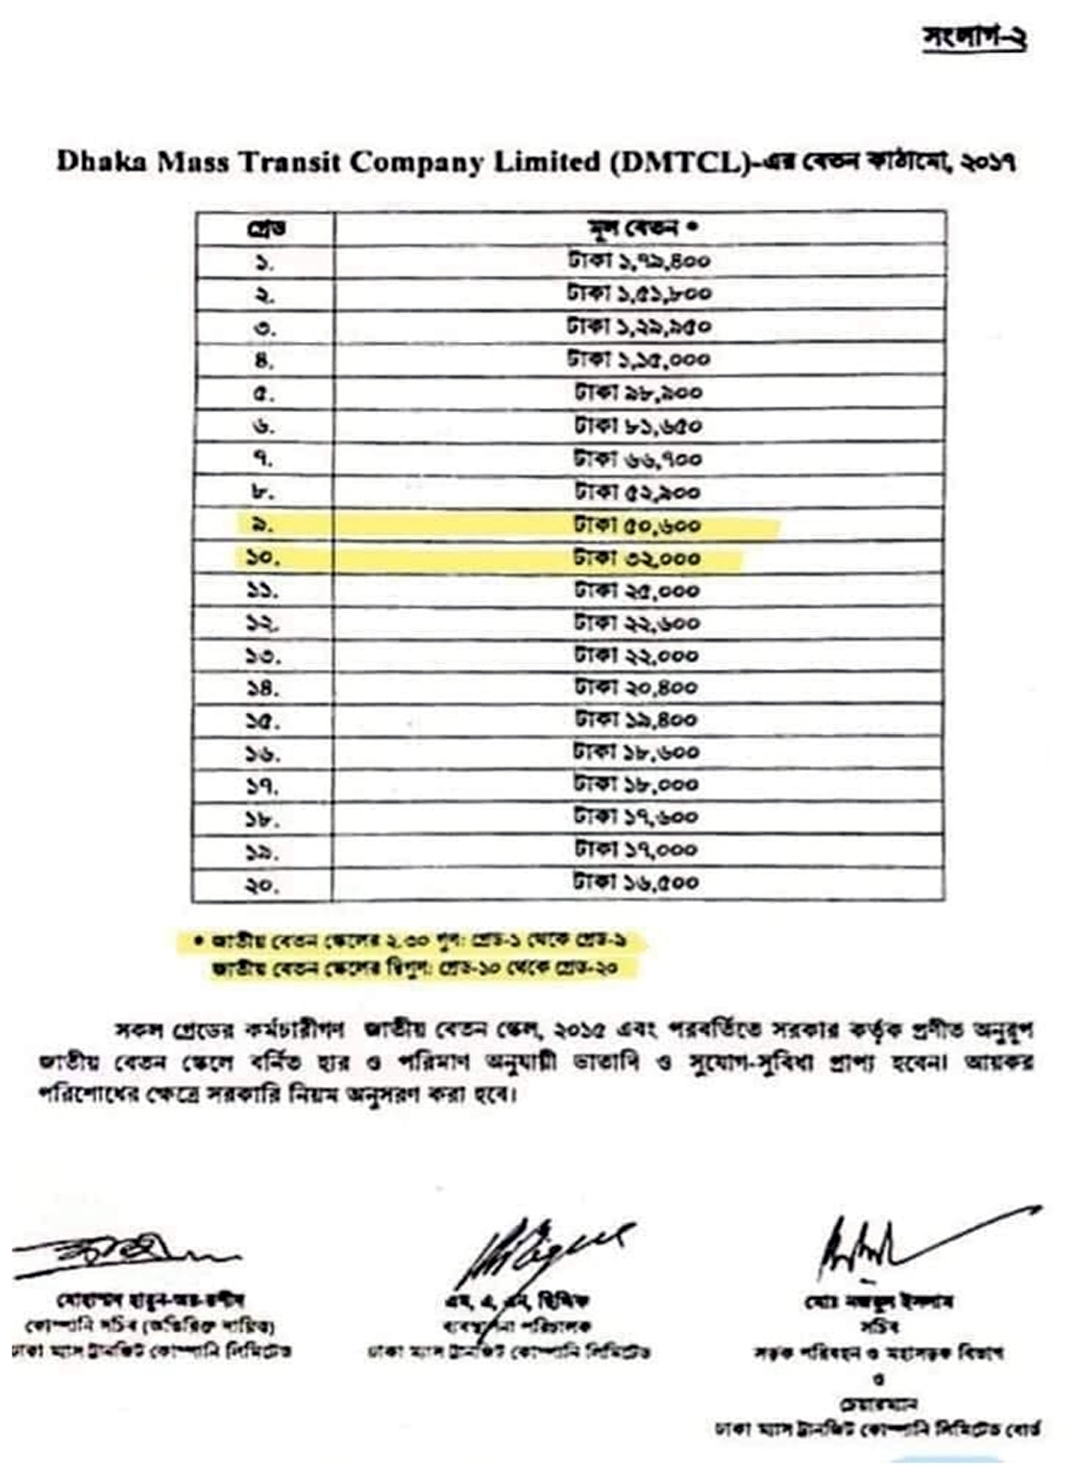 সংলাগ-২
Dhaka Mass Transit Company Limited (DMTCL)-এর বেতন কাঠামো, ২০১৭
গ্রেড মূল বেতন *
১. টাকা ১,৭৯,৪০০
২. টাকা ১,৫১,৮০০
৩. টাকা ১,২৯,৯৫০
৪. টাকা ১,১৫,০০০
৫. টাকা ৯৮,৯০০
৬. টাকা ৮১,৬৫০
৭. টাকা ৬৬,৭০০
৮. টাকা ৫২,৯০০
৯. টাকা ৫০,৬০০
১০. টাকা ৩২,০০০
১১. টাকা ২৫,০০০
১২. টাকা ২২,৬০০
১৩. টাকা ২২,০০০
১৪. টাকা ২০,৪০০
১৫. টাকা ১৯,৪০০
১৬. টাকা ১৮,৬০০
১৭. টাকা ১৮,০০০
১৮. টাকা ১৭,৬০০
১৯. টাকা ১৭,০০০
২০. টাকা ১৬,৫০০
* জাতীয় বেতন স্কেলের ২.৩০ গুণ: গ্রেড-১ থেকে গ্রেড-৯
জাতীয় বেতন স্কেলের দ্বিগুণ: গ্রেড-১০ থেকে গ্রেড-২০
সকল গ্রেডের কর্মচারীগণ জাতীয় বেতন স্কেল, ২০১৫ এবং পরবর্তিতে সরকার কর্তৃক প্রণীত অনুরূপ
জাতীয় বেতন স্কেলে বর্নিত হার ও পরিমাণ অনুযায়ী ভাতাদি ও সুযোগ-সুবিধা প্রাপ্য হবেন। আয়কর
পরিশোধের ক্ষেত্রে সরকারি নিয়ম অনুসরণ করা হবে।
মোহাম্মদ হারুন-অর-রশীদ
কোম্পানি সচিব (অতিরিক্ত দায়িত্ব)
ঢাকা ম্যাস ট্রানজিট কোম্পানি লিমিটেড
এম, এ, এন, ছিদ্দিক
ব্যবস্থাপনা পরিচালক
ঢাকা ম্যাস ট্রানজিট কোম্পানি লিমিটেড
মোঃ নজরুল ইসলাম
সচিব
সড়ক পরিবহন ও মহাসড়ক বিভাগ
ও
চেয়ারম্যান
ঢাকা ম্যাস ট্রানজিট কোম্পানি লিমিটেড বোর্ড